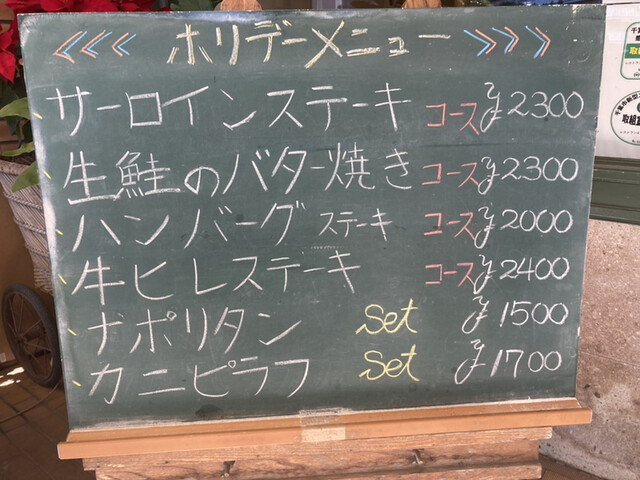 <<< ホリデーメニュー >>>
サーロインステーキ コース ¥2300
生鮭のバター焼き コース ¥2300
ハンバーグ ステーキ コース ¥2000
牛ヒレステーキ コース ¥2400
ナポリタン set ¥1500
カニピラフ set ¥1700